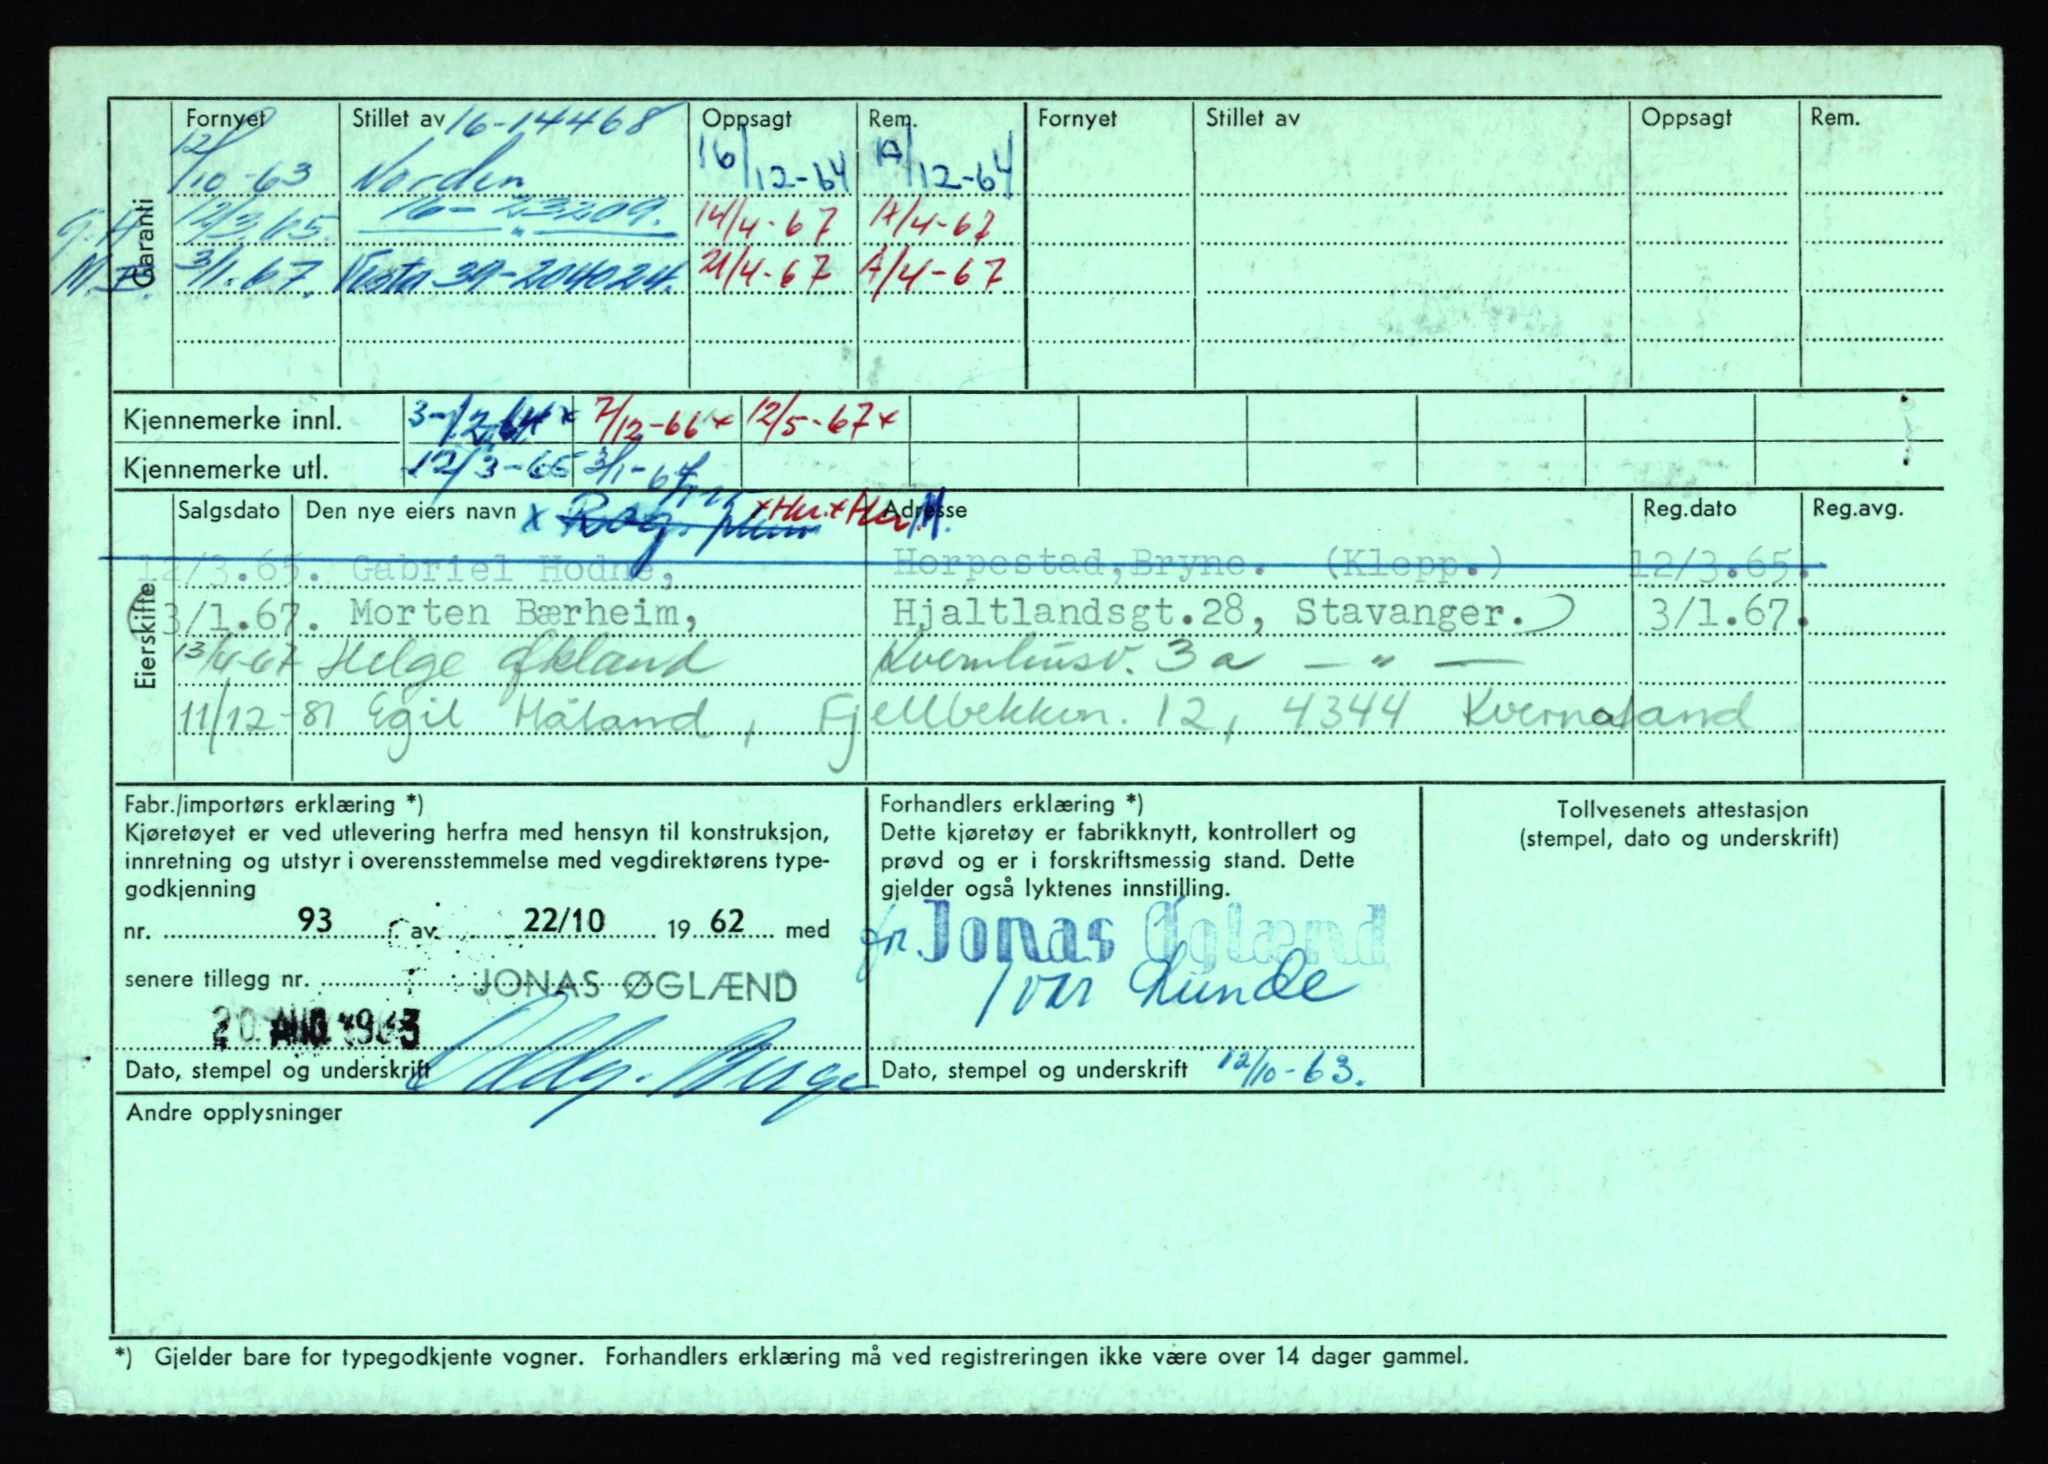 Garanti
Fornyet Stillet av 16-14468 Oppsagt Rem. Fornyet Stillet av Oppsagt Rem.
12/10-63 Norden 16/12-64 /12-64
G.H 12/3.65. 16-23209. 14/4-67 /4-67
M.B. 3/1.67. Vesta 30-204024. 21/4-67 /4-67
Kjennemerke innl. 3-12-64x 7/12-66x 12/5-67x
Kjennemerke utl. 12/3-65 3/1-67
Eierskifte
Salgsdato Den nye eiers navn x Adresse Reg.dato Reg.avg.
12/3.65. Gabriel Hodne, Horpestad,Bryne. (Klepp.) 12/3.65.
3/1.67. Morten Bærheim, Hjaltlandsgt.28, Stavanger. 3/1.67.
13/4-67 Helge Økland Kvernhusv. 3a — " —
11/12-81 Egil Håland, Fjellbekkvn. 12, 4344 Kvernaland
Fabr./importørs erklæring *)
Kjøretøyet er ved utlevering herfra med hensyn til konstruksjon,
innretning og utstyr i overensstemmelse med vegdirektørens type-
godkjenning
nr. 93 av 22/10 19 62 med
senere tillegg nr. JONAS ØGLÆND
20 AUG. 1963
Dato, stempel og underskrift
Forhandlers erklæring *)
Dette kjøretøy er fabrikknytt, kontrollert og
prøvd og er i forskriftsmessig stand. Dette
gjelder også lyktenes innstilling.
for Jonas Øglænd
Ivar Lunde
Dato, stempel og underskrift 12/10-63.
Tollvesenets attestasjon
(stempel, dato og underskrift)
Andre opplysninger
*) Gjelder bare for typegodkjente vogner. Forhandlers erklæring må ved registreringen ikke være over 14 dager gammel.